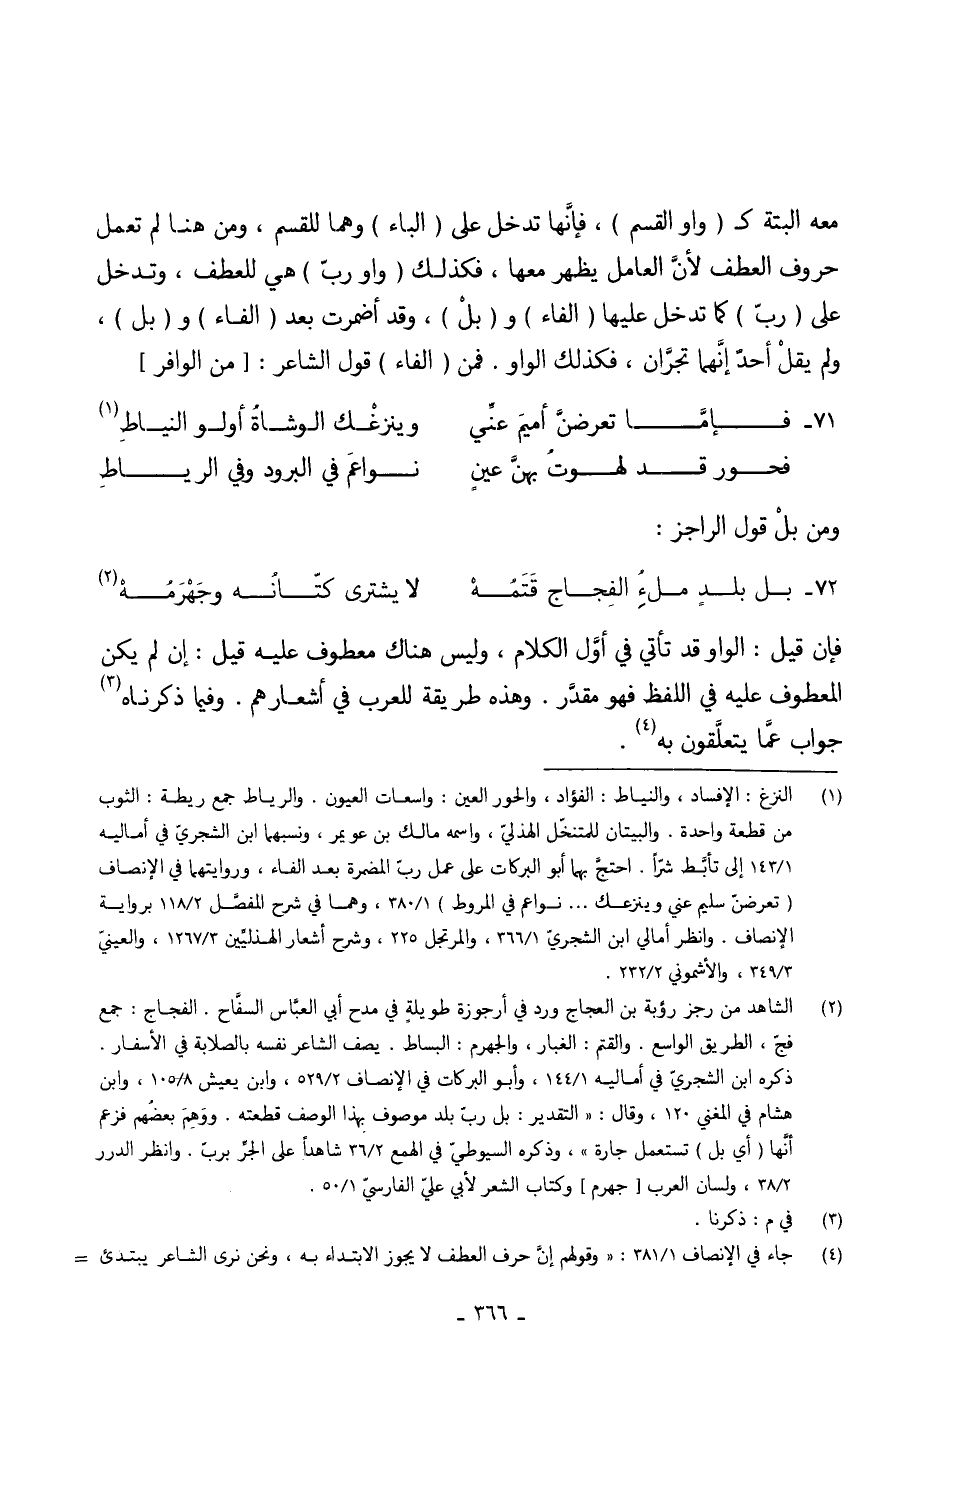 معه البتة كـ ( واو القسم ) ، فإنَّها تدخل على ( الباء ) وهما للقسم ، ومن هنا لم تعمل
حروف العطف لأنَّ العامل يظهر معها ، فكذلك ( واو ربّ ) هي للعطف ، وتدخل
على ( ربّ ) كما تدخل عليها ( الفاء ) و ( بلْ ) ، وقد أضمرت بعد ( الفاء ) و ( بل ) ،
ولم يقلْ أحدٌ إنَّها تجرَّان ، فكذلك الواو . فمن ( الفاء ) قول الشاعر : [ من الوافر ]
٧١ـ فإمَّا تعرضنَّ أميمَ عنِّي وينزغْك الوشاةُ أولو النياطِ(١)
فحور قد لهوتُ بهنَّ عينٍ نواعمَ في البرود وفي الرياطِ
ومن بلْ قول الراجز :
٧٢ـ بل بلدٍ ملءُ الفِجاج قَتَمُهْ لا يشترى كتّانُه وجَهْرَمُهْ(٢)
فإن قيل : الواو قد تأتي في أوَّل الكلام ، وليس هناك معطوف عليه قيل : إن لم يكن
المعطوف عليه في اللفظ فهو مقدَّر . وهذه طريقة للعرب في أشعارهم . وفيما ذكرناه(٣)
جواب عمَّا يتعلَّقون به(٤) .
(١) النزغ : الإفساد ، والنياط : الفؤاد ، والحور العين : واسعات العيون . والرياط جمع ريطة : الثوب
من قطعة واحدة . والبيتان للمتنخّل الهذليّ ، واسمه مالك بن عويمر ، ونسبها ابن الشجريّ في أماليه
١٤٣/١ إلى تأبَّط شرّاً . احتجَّ بها أبو البركات على عمل ربّ المضمرة بعد الفاء ، وروايتها في الإنصاف
( تعرضنّ سليم عني وينزعك ... نواعم في المروط ) ٣٨٠/١ ، وهما في شرح المفصَّل ١١٨/٢ برواية
الإنصاف . وانظر أمالي ابن الشجريّ ٣٦٦/١ ، والمرتجل ٢٢٥ ، وشرح أشعار الهذليّين ١٢٦٧/٣ ، والعينيّ
٣٤٩/٣ ، والأشموني ٢٣٢/٢ .
(٢) الشاهد من رجز رؤبة بن العجاج ورد في أرجوزة طويلةٍ في مدح أبي العبَّاس السفَّاح . الفجاج : جمع
فجّ ، الطريق الواسع . والقتم : الغبار ، والجهرم : البساط . يصف الشاعر نفسه بالصلابة في الأسفار .
ذكره ابن الشجريّ في أماليه ١٤٤/١ ، وأبو البركات في الإنصاف ٥٢٩/٢ ، وابن يعيش ١٠٥/٨ ، وابن
هشام في المغني ١٢٠ ، وقال : « التقدير : بل ربّ بلد موصوف بهذا الوصف قطعته . ووَهِمَ بعضُهم فزعم
أنَّها ( أي بل ) تستعمل جارة » ، وذكره السيوطيّ في الهمع ٣٦/٢ شاهداً على الجرِّ بربّ . وانظر الدرر
٣٨/٢ ، ولسان العرب [ جهرم ] وكتاب الشعر لأبي عليّ الفارسيّ ٥٠/١ .
(٣) في م : ذكرنا .
(٤) جاء في الإنصاف ٣٨١/١ : « وقولهم إنَّ حرف العطف لا يجوز الابتداء به ، ونحن نرى الشاعر يبتدئ =
ـ ٣٦٦ ـ